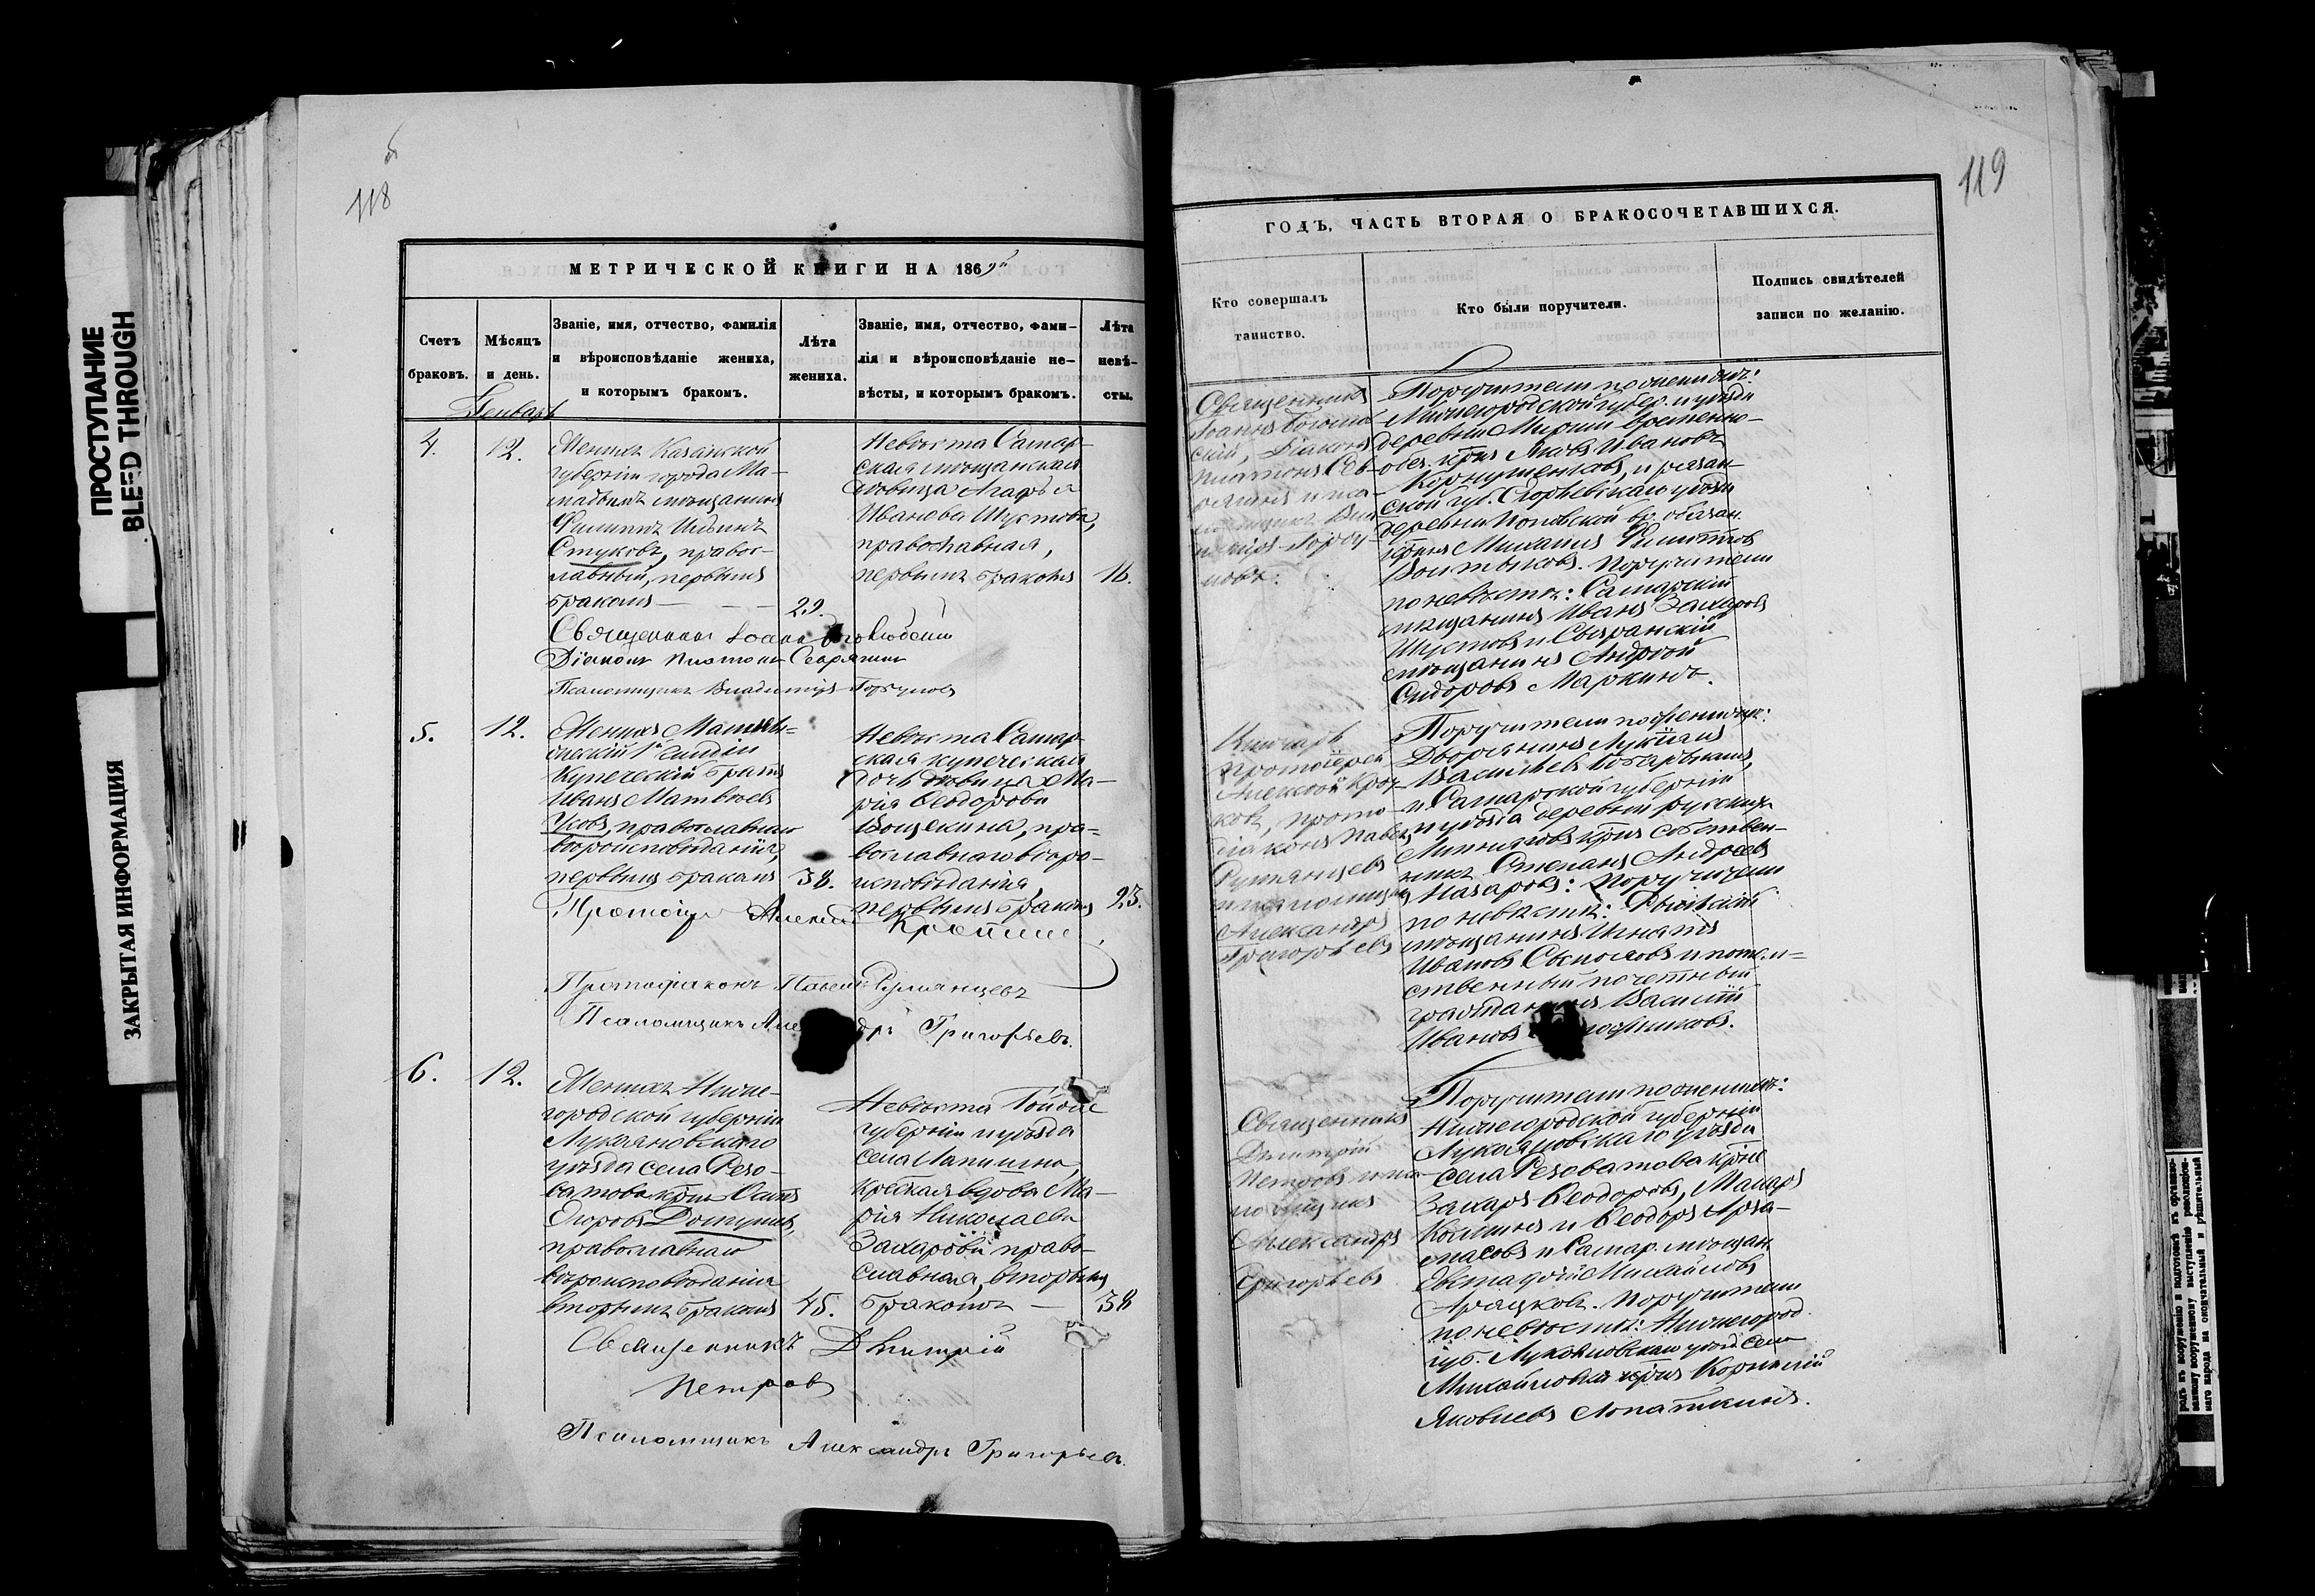 118
МЕТРИЧЕСКОЙ КНИГИ НА 1869й
Счетъ браковъ.
Мѣсяцъ и день.
Званіе, имя, отчество, фамилія
и вѣроисповѣданіе жениха,
и которымъ бракомъ.
Лѣта жениха.
Званіе, имя, отчество, фами-
лія и вѣроисповѣданіе не-
вѣсты, и которымъ бракомъ.
Лѣта невѣ-
сты.
Генварь
4.
12.
Женихъ Казанской
губерніи города Ма-
мадышъ мѣщанинъ
Филиппъ Ильинъ
Стуковъ, правос-
лавный, первымъ
бракомъ —
29.
Невѣста Самар-
ская мѣщанская
дѣвица Агафья
Иванова Шустова,
православная,
первымъ бракомъ
16.
Священникъ Іоаннъ Боголюбскій
Діаконъ Платонъ
Псаломщикъ Владиміръ Горбуновъ
5.
12.
Женихъ
1й гильдіи
Купеческій братъ
Иванъ Матвѣевъ
Усовъ, православнаго
вѣроисповѣданія,
первымъ бракомъ
38.
Невѣста Самар-
ская купеческая
дочь дѣвица Ма-
рія Ѳеодорова
Вощекина, пра-
вославнаго вѣро-
исповѣданія,
первымъ бракомъ
23.
Протоіер Алексій
Протодіаконъ Павелъ Румянцевъ
Псаломщикъ Але др Григорьевъ.
6.
12.
Женихъ Ниже-
городской губерніи
Лукояновскаго
уѣзда села Резо-
ватова крнъ Осипъ
Егоровъ
православнаго
вѣроисповѣданія
вторымъ бракомъ
45.
Невѣста Тойже
губерніи и уѣзда
села
крская вдова Ма-
рія Николаева
Захарова право-
славная, вторымъ
бракомъ —
38
Священникъ Дмитрій
Петровъ
Псаломщикъ Александръ Григорьевъ.
119
ГОДЪ, ЧАСТЬ ВТОРАЯ О БРАКОСОЧЕТАВШИХСЯ.
Кто совершалъ
таинство.
Кто были поручители.
Подпись свидѣтелей
записи по желанію.
Священникъ
Іоаннъ Боголюб-
скій, Діаконъ
Платонъ
и пса-
ломщикъ Вла-
диміръ Горбу-
новъ.
Поручители по женихѣ:
Нижегородской губер. и уѣзда
деревни временно-
обяз. крнъ Яковъ Ивановъ
и рязан-
ской губ. Егорьевскаго уѣзда
деревни Поповской вр. обязан.
крнъ Михаилъ Филиповъ
Поручители
по невѣстѣ: Самарскій
мѣщанинъ Иванъ Захаровъ
Шустовъ и Сызранскій
мѣщанинъ Андрей
Сидоровъ Маркинъ.
протоіерей
Алексѣй
прото-
діаконъ Павелъ
Румянцевъ
и псаломщикъ
Александръ
Григорьевъ
Поручители по женихѣ:
Дворянинъ Лукіанъ
Васильевъ
и Самарской губерніи
и уѣзда деревни русскихъ
крнъ собствен-
никъ Степанъ Андреевъ
Назаровъ: Поручители
по невѣстѣ:
мѣщанинъ Игнатъ
Ивановъ и потом-
ственный почетный
гражданинъ Василій
Ивановъ
Священникъ
Дмитрій
Петровъ и пса-
ломщикъ
Александръ
Григорьевъ
Поручители по женихѣ:
Нижегородской губерніи
Лукояновскаго уѣзда
села Резоватова крне
Захаръ Ѳеодоровъ, Макаръ
и Ѳеодоръ Арза-
масовъ и Самар. мѣщан.
Евстафій Михайловъ
Поручители
по невѣстѣ: Нижегород.
губ. Лукояновскаго уѣзд села
Михайловки крнъ Корнилій
Яковлевъ Лопаткинъ.
ПРОСТУПАНИЕ
BLEED THROUGH
ЗАКРЫТАЯ ИНФОРМАЦИЯ